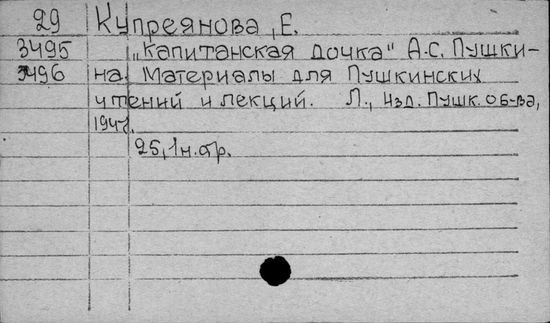 29 Купреянова, Е.
3495 "Капитанская дочка" А.С. Пушки-
3496 на. Материалы для Пушкинских
чтений и лекций. Л., Изд. Пушк. об-ва,
1947.
25, 1 н. стр.